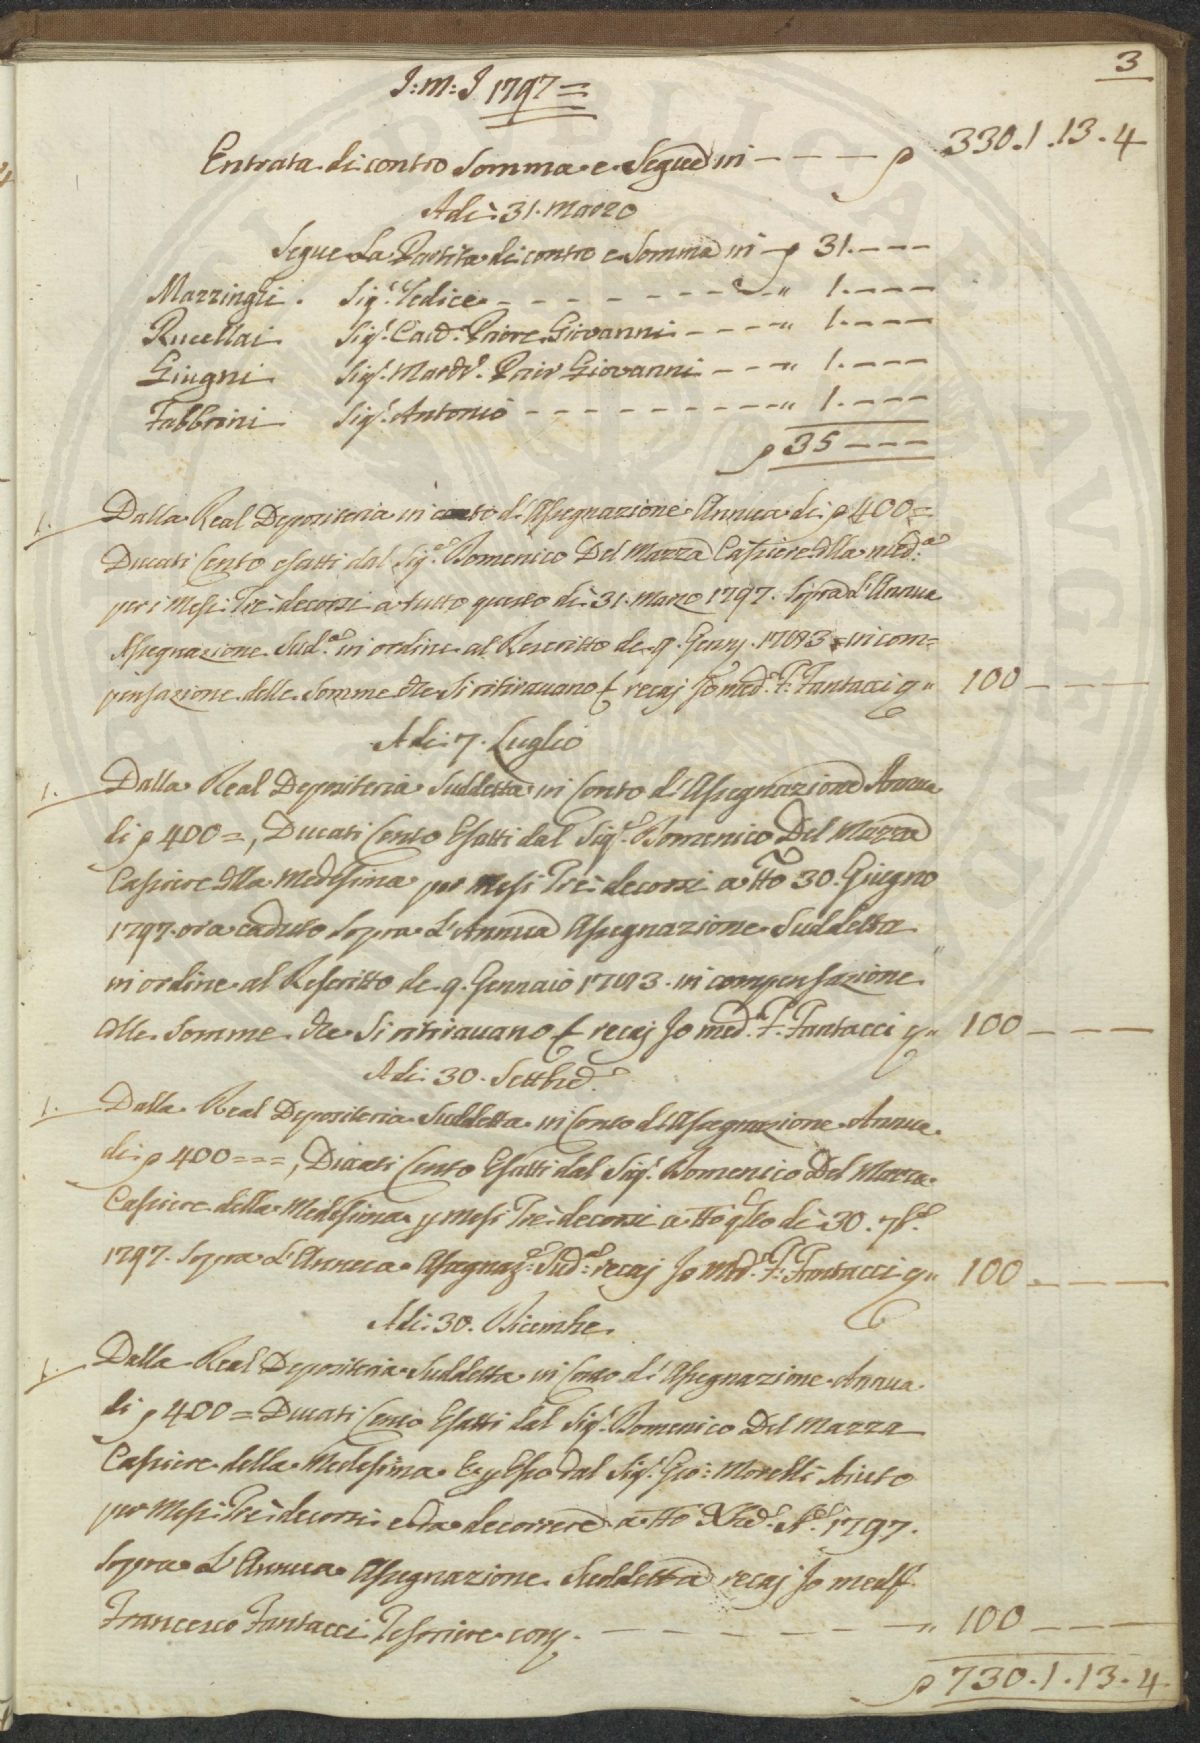 3
J: M: J 1797 =
Entrata di contro Somma e Segue in - - - - ₽ 330. 1. 13. 4
Adi: 31. Marzo
Segue La Partita di contro e Somma in - ₽ 31. - - -
Mazzinghi. Sig.r Tedice - - - - - - - - - " 1. - - -
Rucellai. Sig.r Cav. Priore Giovanni - - - - " 1. - - -
Giugni. Sig.r March. Prior Giovanni - - - " 1. - - -
Fabbrini. Sig.r Antonio - - - - - - - - - - " 1. - - -
₽ 35 - - -
1. Dalla Real Depositeria in conto di Assegnazione Annua di ₽ 400 =
Ducati Cento esatti dal Sig.e Domenico Del Mazza Cassiere della med.a
per i Mesi Tre decorsi a tutto questo dì 31. Marzo 1797. Sopra L'Annua
Assegnazione Sud.a in ordine al Rescritto de 9. Genn. 1793 in com=
pensazione delle Somme che si ritiravano recai Io med. F: Fantacci " 100 - - -
Adi: 7. Luglio
1. Dalla Real Depositeria Suddetta in Conto di Assegnazione Annua
di ₽ 400 =, Ducati Cento Esatti dal Sig.e Domenico Del Mazza
Cassiere della Medesima per Mesi Tre decorsi a tto 30. Giugno
1797. ora caduto Sopra L'Annua Assegnazione Suddetta
in ordine al Rescritto de 9. Gennaio 1793. in compensazione
delle Somme che Si ritiravano recai Io med. F: Fantacci " 100 - - -
Adi: 30. Settbre
1. Dalla Real Depositeria Suddetta in Conto di Assegnazione Annua
di ₽ 400 = = =, Ducati Cento Esatti dal Sig.r Domenico Del Mazza
Cassiere della Medesima p Mesi Tre decorsi a tto qsto dì 30. 7bre
1797. Sopra L'Annua Assegnaz.e Sud.a recai Io Med. F: Fantacci " 100 - - -
Adi: 30. Dicembre.
1. Dalla Real Depositeria Suddetta in Conto di Assegnazione Annua
di ₽ 400 = Ducati Cento Esatti dal Sig.r Domenico Del Mazza
Cassiere della Medesima E p Esso dal Sig.r Gio: Morelli Aiuto
per Mesi Tre decorsi e da decorrere a tto Xbre 1797.
Sopra L'Annua Assegnazione Suddetta recai Io med.
Francesco Fantacci Tesoriere - - - - - - - " 100 - - -
₽ 730. 1. 13. 4